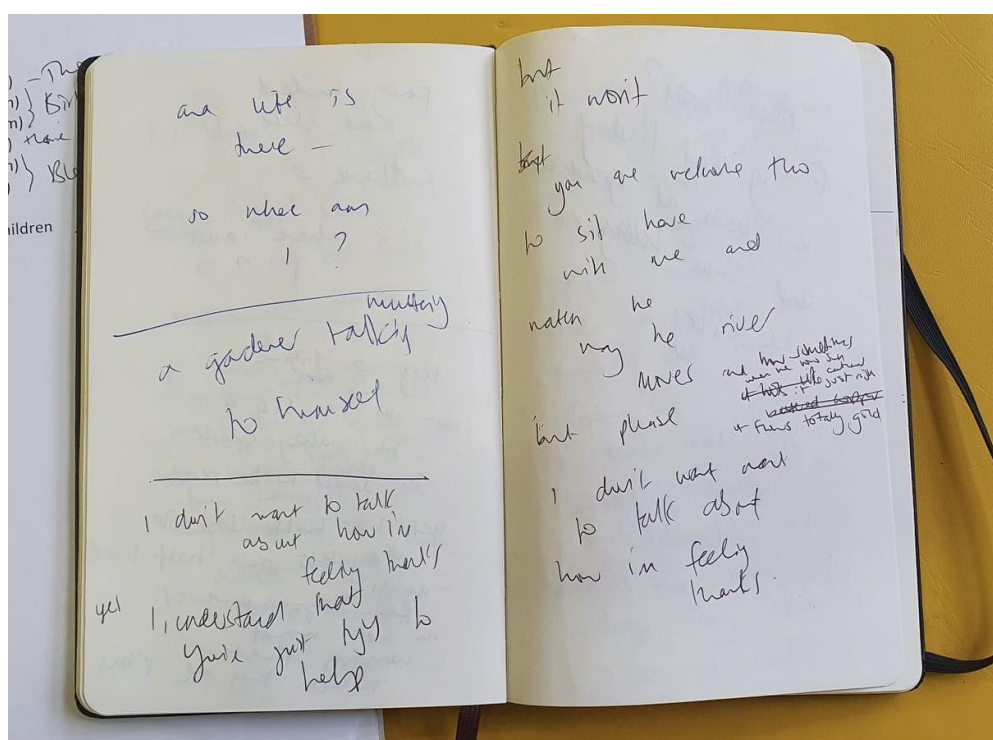 and life is
there —
so where am
I ?
muttering
a gardener talking
to himself
I don't want to talk
about how i'm
feeling thanks
yes I understand that
you're just trying to
help
but
it won't
you are welcome tho
to sit here
with me and
watch the
way the river
moves
and how sometimes
when the
it just right
it turns totally gold
but please
I don't want want
to talk about
how i'm feeling
thanks.
ildren